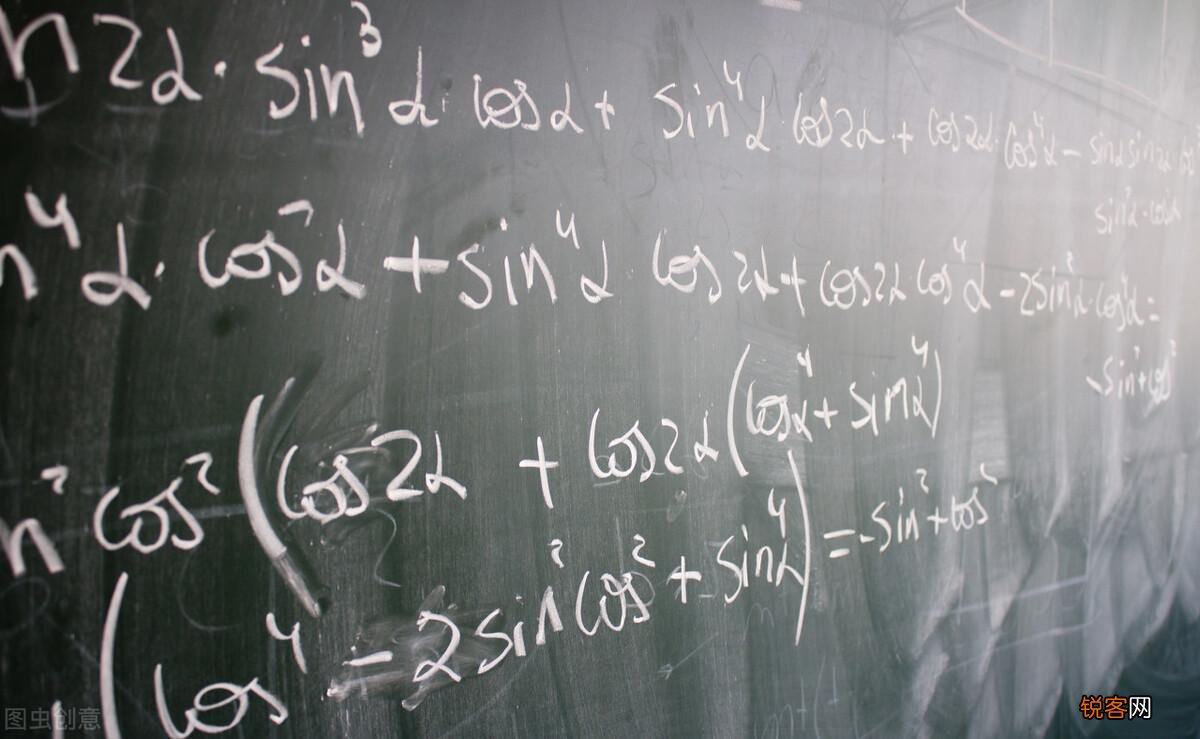 n 2α · sin³ α · cos α + sin⁴ α · cos 2α + cos 2α · cos⁴ α − sin α sin 2α
sin² α · cos α
n⁴ α · cos² α + sin⁴ α cos 2α + cos 2α cos⁴ α − 2 sin² α · cos⁴ α =
− sin² + cos²
n² cos² ( cos 2α + cos 2α ( cos⁴ α + sin⁴ α )
( cos⁴ − 2 sin² cos² + sin⁴ α ) = − sin² + cos²
图虫创意
锐客网